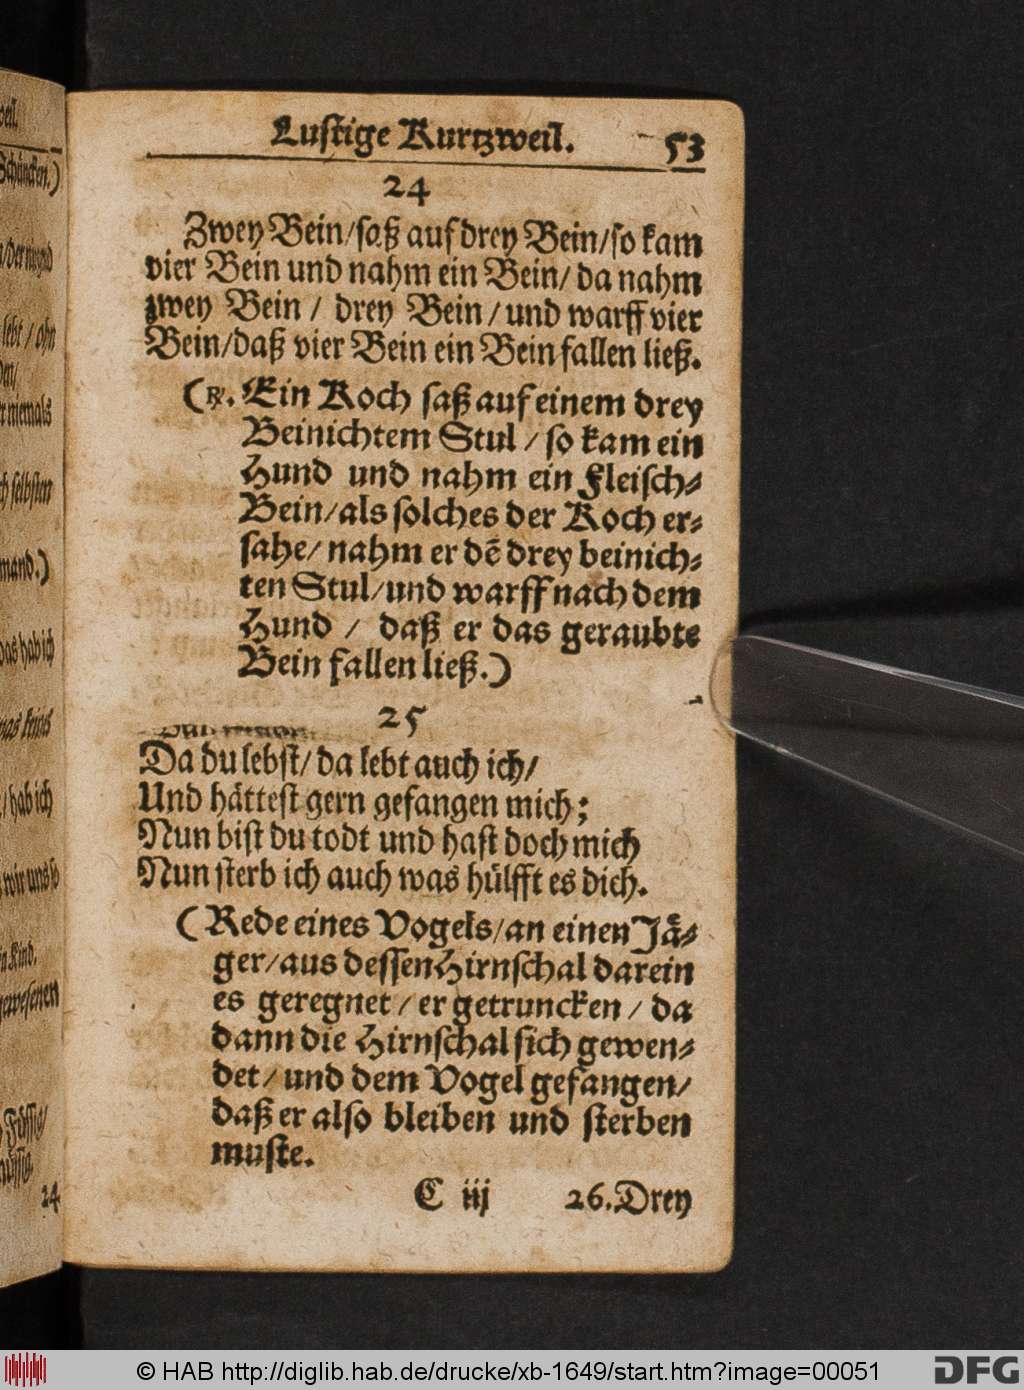 Lustige Kurtzweil. 53
24
Zwey Bein/saß auf drey Bein/so kam
vier Bein und nahm ein Bein/da nahm
zwey Bein / drey Bein / und warff vier
Bein/daß vier Bein ein Bein fallen ließ.
(℞. Ein Koch saß auf einem drey
Beinichtem Stul / so kam ein
Hund und nahm ein Fleisch⸗
Bein/als solches der Koch er⸗
sahe/nahm er dē drey beinich⸗
ten Stul/und warff nach dem
Hund / daß er das geraubte
Bein fallen ließ.)
25
Da du lebst/da lebt auch ich/
Und hättest gern gefangen mich;
Nun bist du todt und hast doch mich
Nun sterb ich auch was hülfft es dich.
(Rede eines Vogels/an einen Jä⸗
ger/aus dessen Hirnschal darein
es geregnet/er getruncken/da
dann die Hirnschal sich gewen⸗
det/und dem Vogel gefangen/
daß er also bleiben und sterben
muste.
C iij 26. Drey
weil.
Schäncken.)
lebt / ohn
niemals
selbsten
mand.)
das hab ich
/ hab ich
wir uns so
Kind.
gewesenen
24
© HAB http://diglib.hab.de/drucke/xb-1649/start.htm?image=00051
DFG